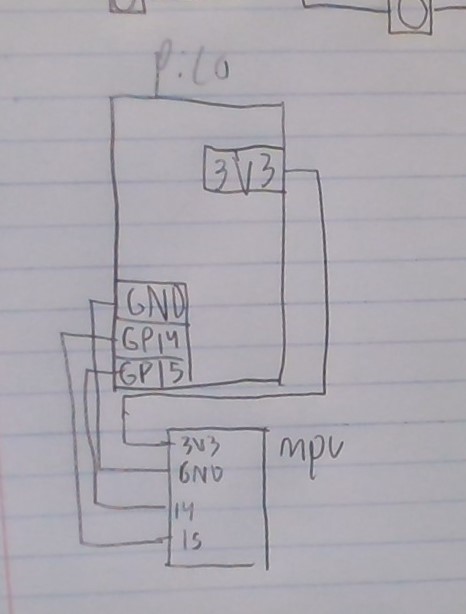 Pico
3V3
GND
GP14
GP15
3V3
mpu
GND
14
15